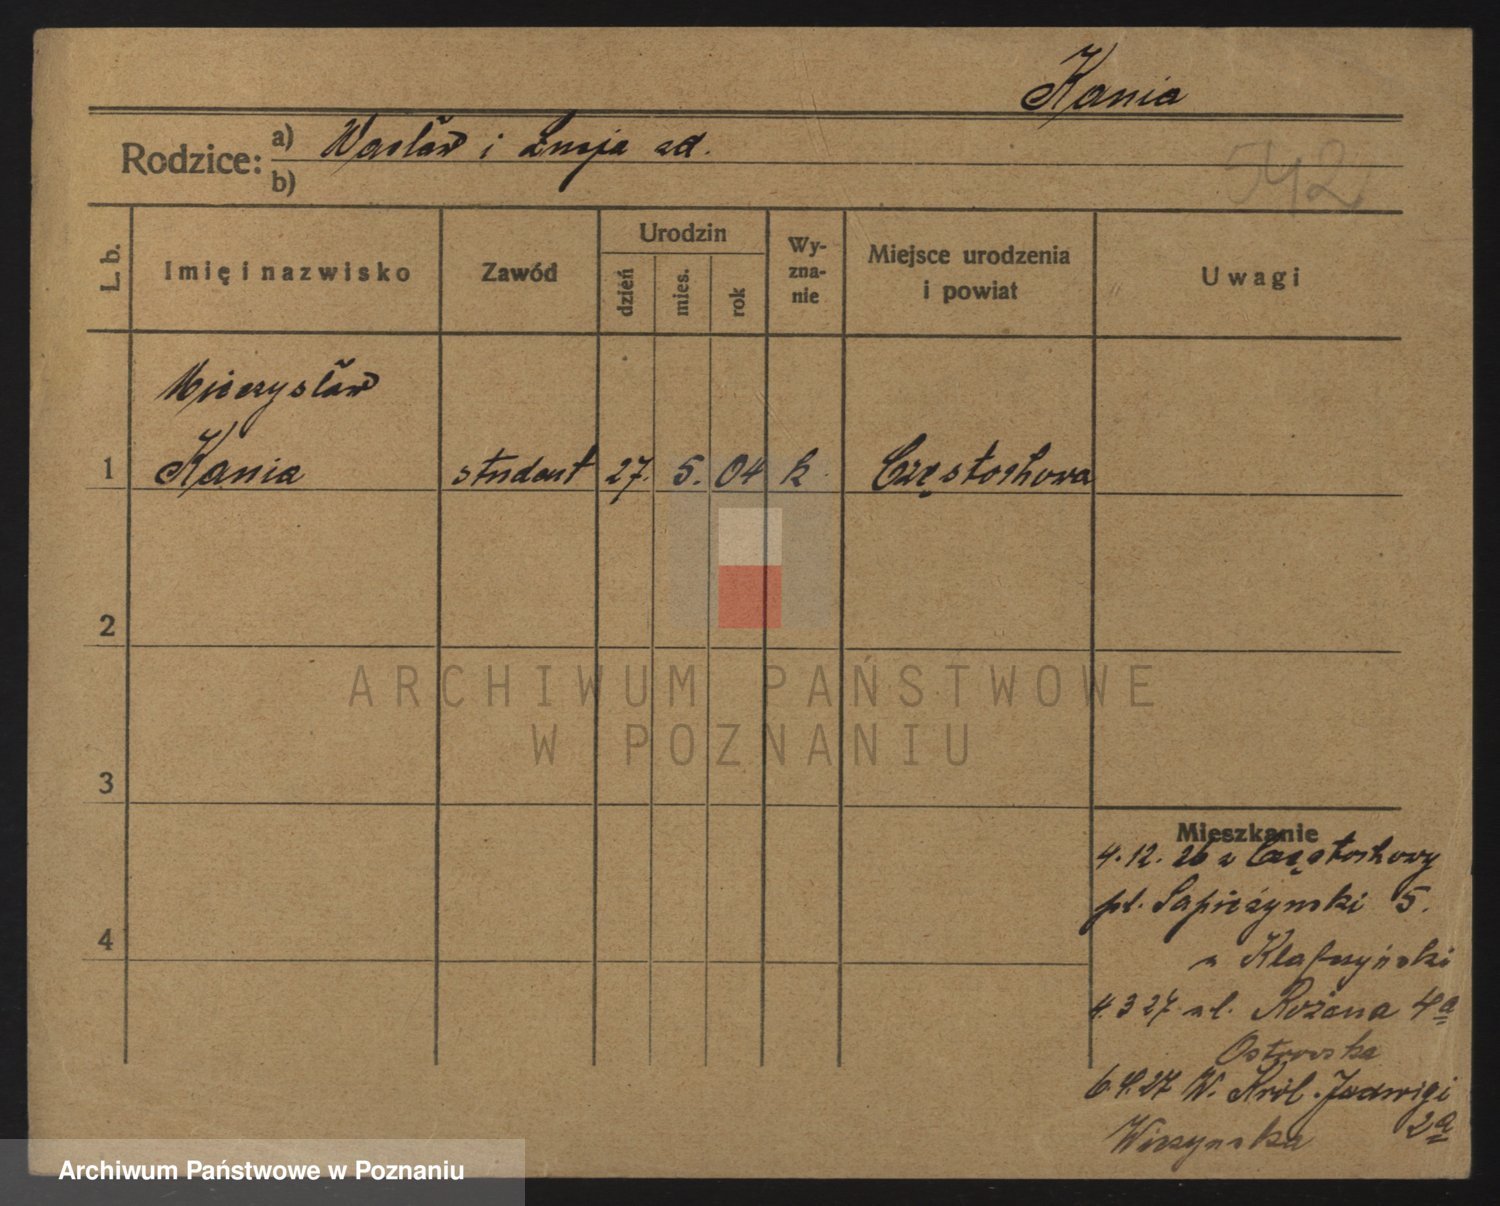 Kania
Rodzice:
a) Wacław i Łucja ad.
b)
542
L. b.
Imię i nazwisko
Zawód
Urodzin
dzień
mies.
rok
Wy-
zna-
nie
Miejsce urodzenia
i powiat
Uwagi
Mieczysław
1 Kania student 27. 5. 04 k Częstochowa
2
3
4
ARCHIWUM PAŃSTWOWE
W POZNANIU
Mieszkanie
4.12.26 z Częstochowy
pl. Sapieżyński 5.
u
4.3 27 ul. Różana 4a
Ostrowska
6.4.27 W. Król. Jadwigi
2a
Archiwum Państwowe w Poznaniu